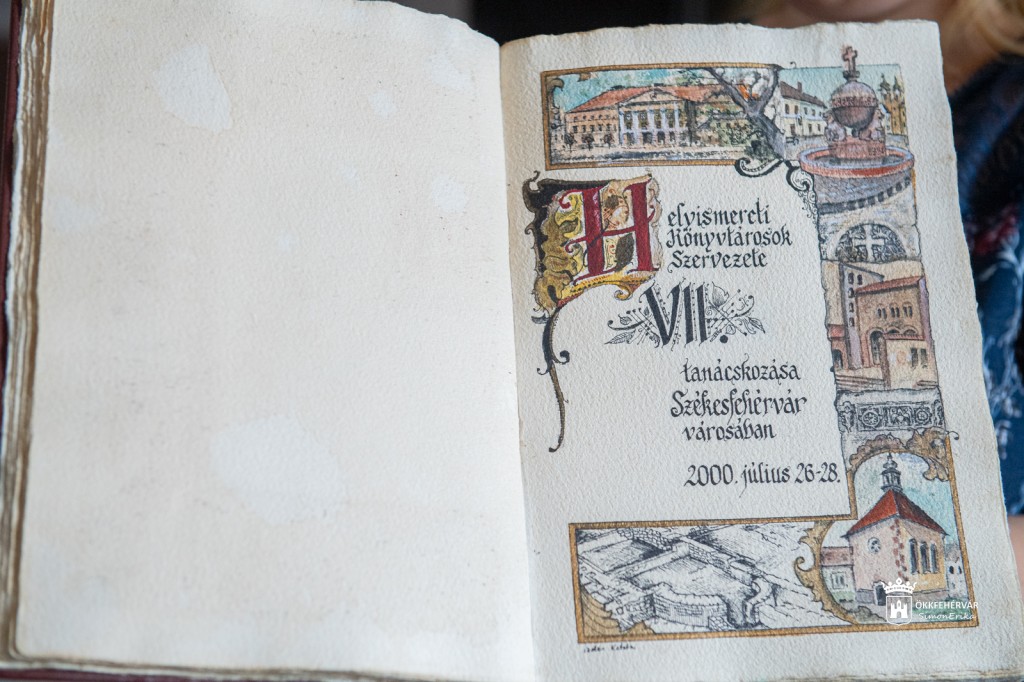 Helyismereti
Könyvtárosok
Szervezete
VII.
tanácskozása
Székesfehérvár
városában
2000. július 26-28.
ÖKKFEHÉRVÁR
SimonErika